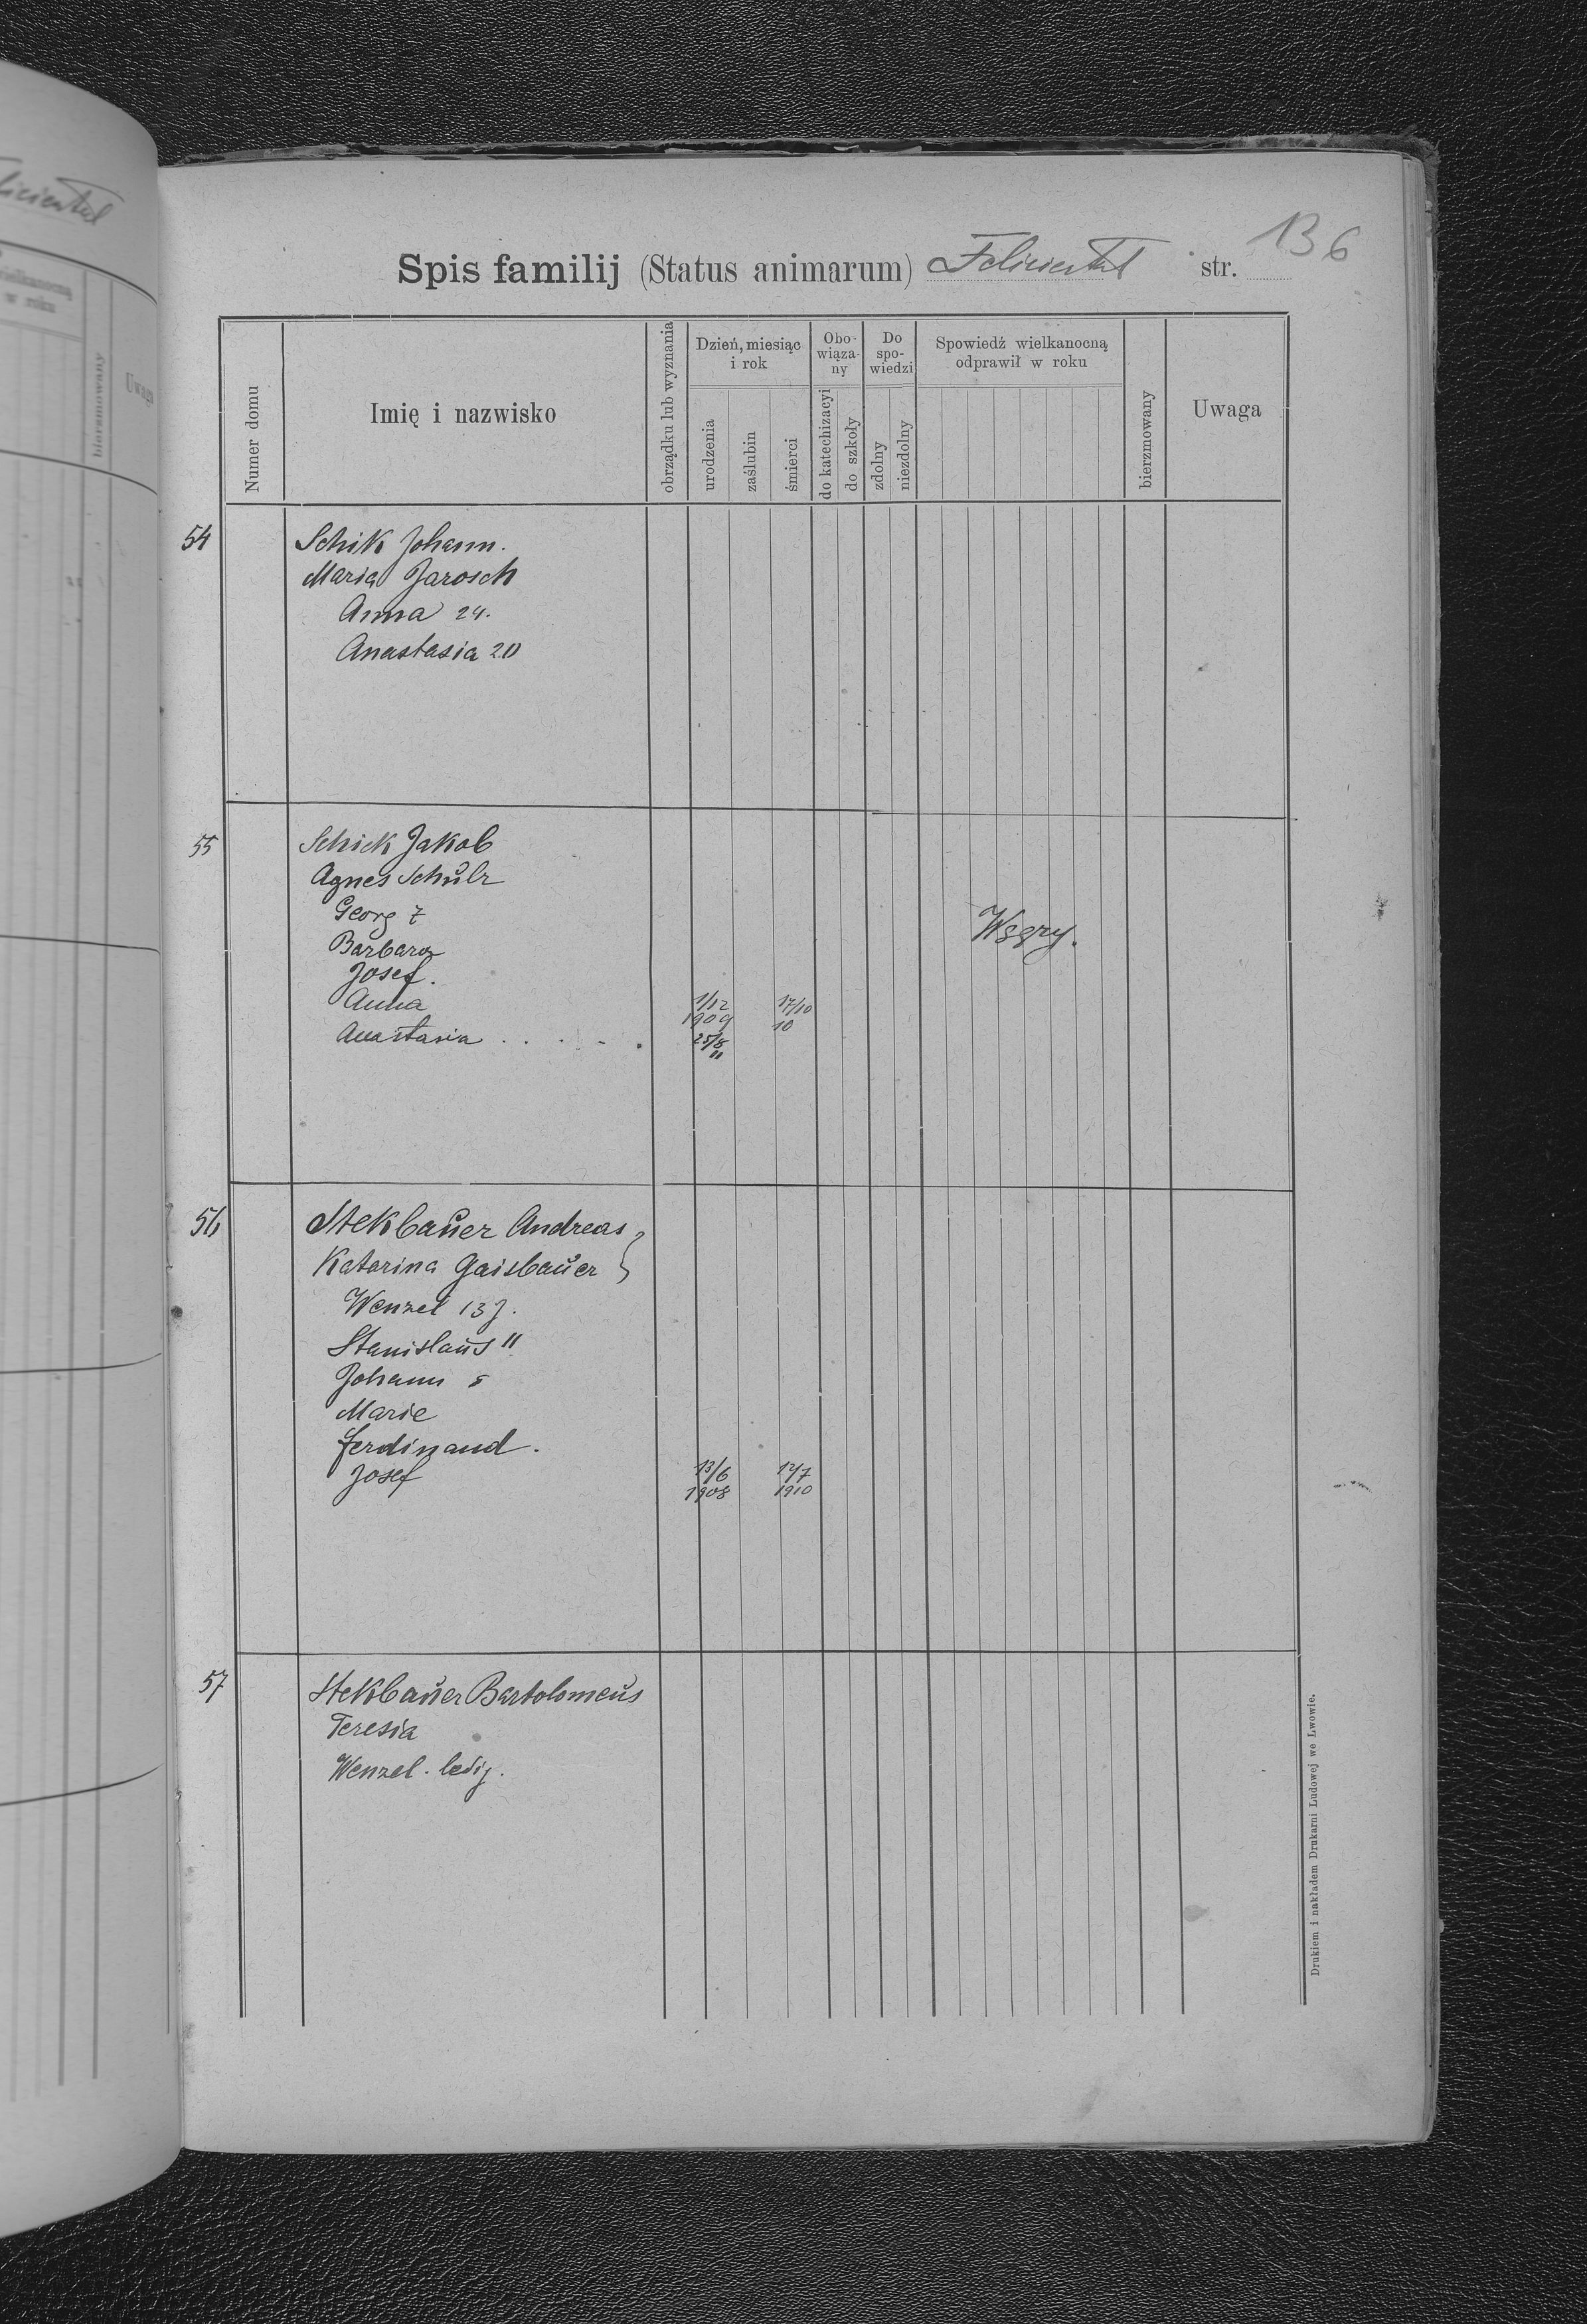 Spis familij (Status animarum) Felicienthal str. 136
Numer domu
Imię i nazwisko
obrządku lub wyznania
Dzień, miesiąc i rok
urodzenia
zaślubin
śmierci
Obo-
wiąza-
ny
do katechizacyi
do szkoły
Do
spo-
wiedzi
zdolny
niezdolny
Spowiedź wielkanocną
odprawił w roku
bierzmowany
Uwaga
54 Schik Johann.
Maria Jarosch
Anna 24.
Anastasia 20
55 Schick Jakob
Agnes Schulz
Georg 7
Barbara
Josef.
Anna 1/12 1909 17/10 10
Anastasia . . . . . 25/8 11
Węgry.
56 Stekbauer Andreas
Katarina Gaisbauer
Wenzel 13 J.
Stanislaus 11
Johann 8
Marie
Ferdinand.
Josef 13/6 1908 12/7 1910
57 Stekbauer Bartolomeus
Teresia
Wenzel. ledig.
Drukiem i nakładem Drukarni Ludowej we Lwowie.